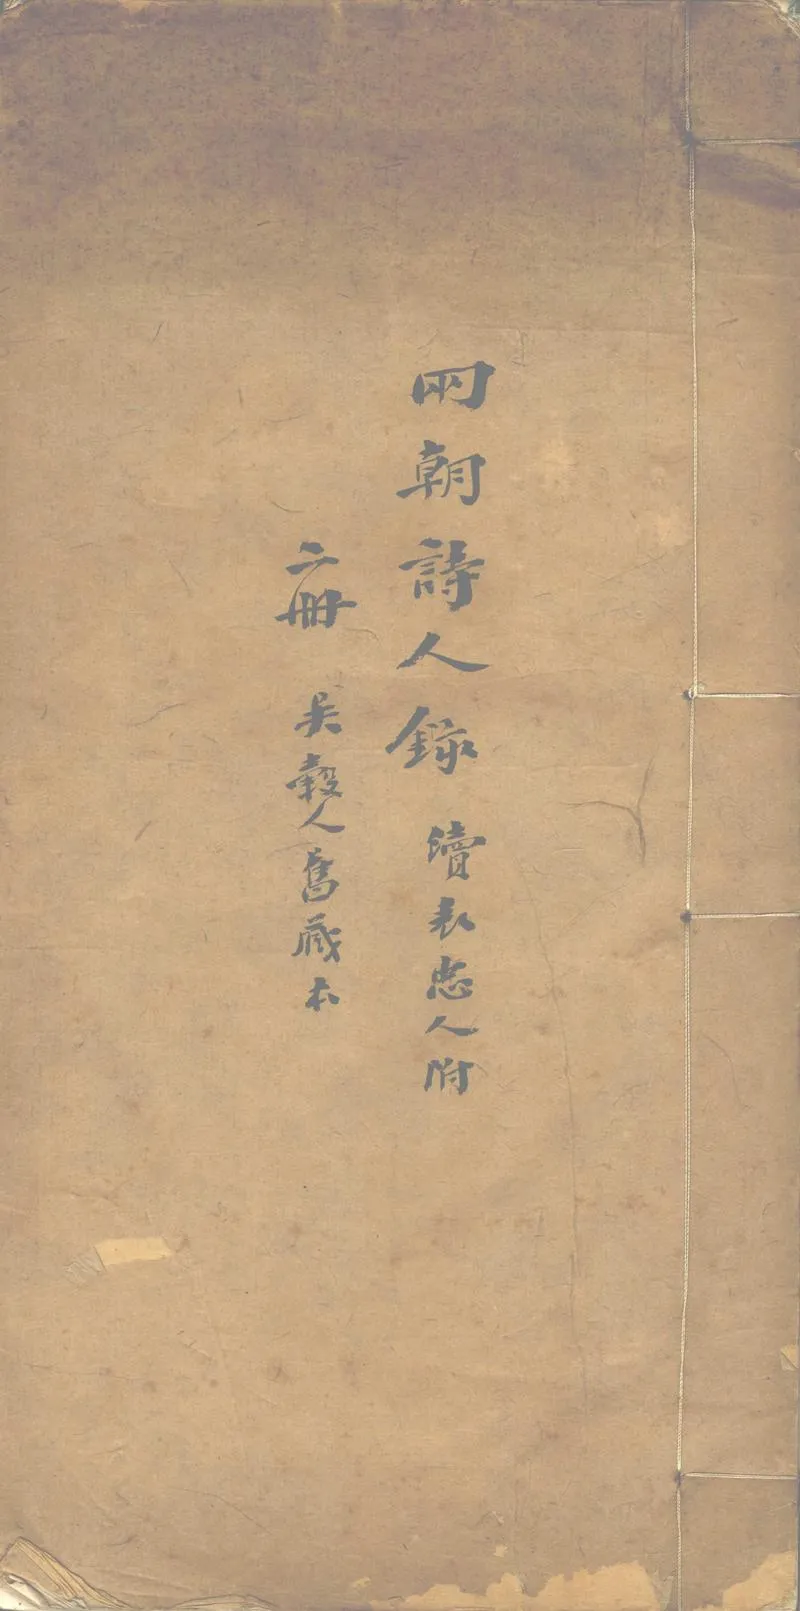 兩朝詩人錄 續表忠人附
二冊 吴榖人舊藏本